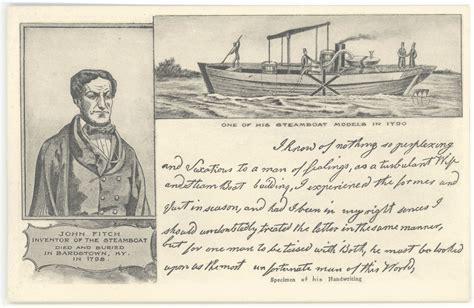 ONE OF HIS STEAMBOAT MODELS IN 1790
I know of nothing so perplexing
and vexatious to a man of feelings, as a turbulent Wife
and Steam Boat building, I experienced the former and
quit in season, and had I been in my right sences I
should undoubtedly treated the latter in the same manner,
but for one man to be teased with Both, he must be looked
upon as the most unfortunate man of this World,
Specimen of his Handwriting
JOHN FITCH
INVENTOR OF THE STEAMBOAT
DIED AND BURIED
IN BARDSTOWN, KY.
IN 1798.